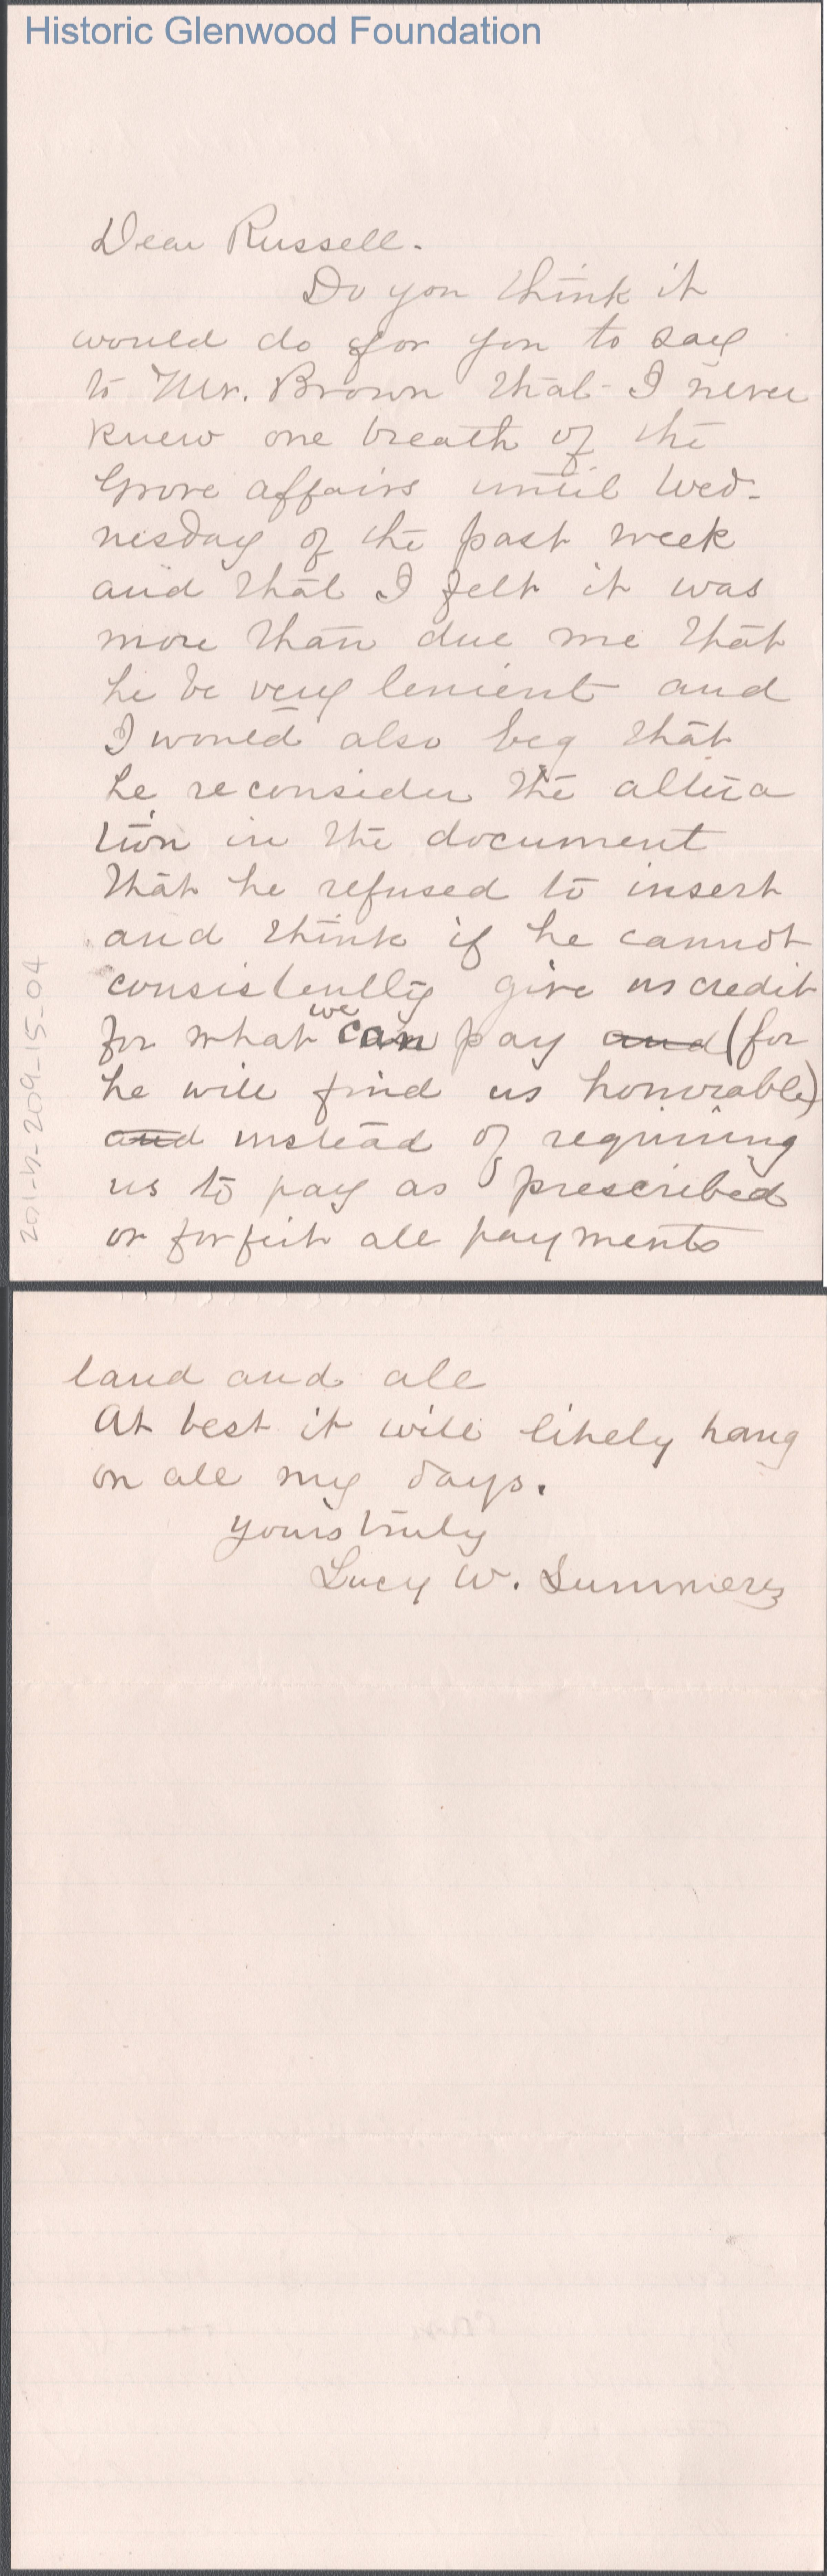 Historic Glenwood Foundation
Dear Russell.
Do you think it
would do for you to say
to Mr. Brown that I never
knew one breath of the
Grove affairs until Wed-
nesday of the past week
and that I felt it was
more than due me that
he be very lenient and
I would also beg that
he reconsider the altera
tion in the document
that he refused to insert
and think if he cannot
consistently give us credit
for what we can pay and (for
he will find us honorable)
and instead of requiring
us to pay as prescribed
or forfeit all payments
201-h-209-15-04
land and all
At best it will likely hang
on all my days.
yours truly
Lucy W. Summers